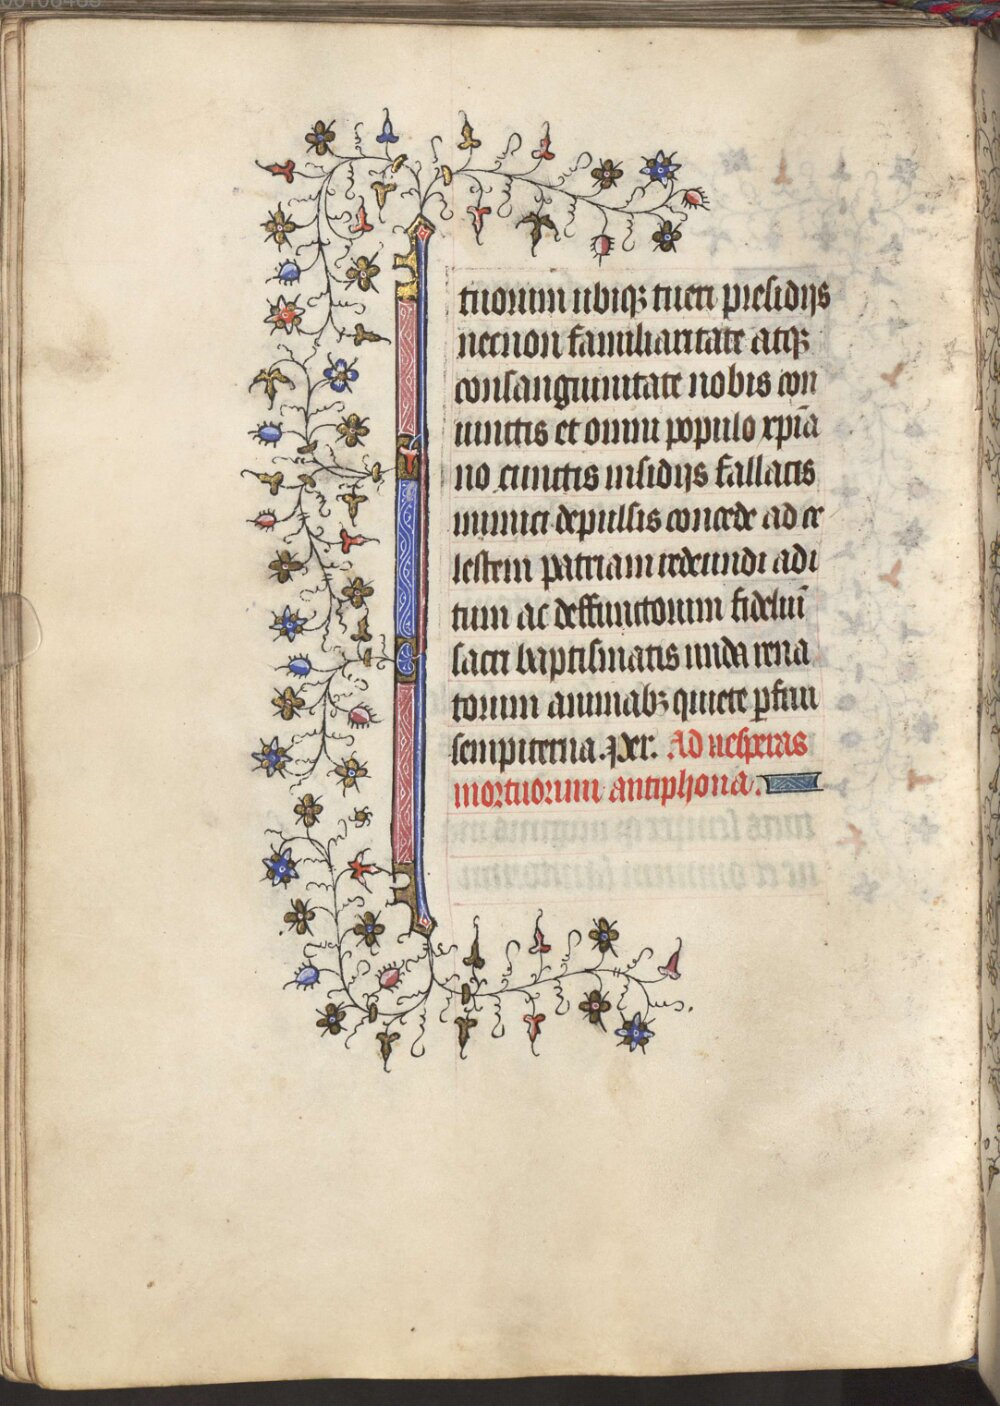 tuorum ubiqꝫ tueri presidijs
necnon familiaritate atqꝫ
consanguinitate nobis con
iunctis et omni populo xp̄ia
no cunctis insidijs fallacis
inimici depulsis concede ad ce
lestem patriam redeundi adi
tum ac deffunctorum fideliū
sacri baptismatis unda rena
torum animabꝫ quiete ꝑfrui
sempiterna. Per. Ad uesperas
mortuorum antiphona.